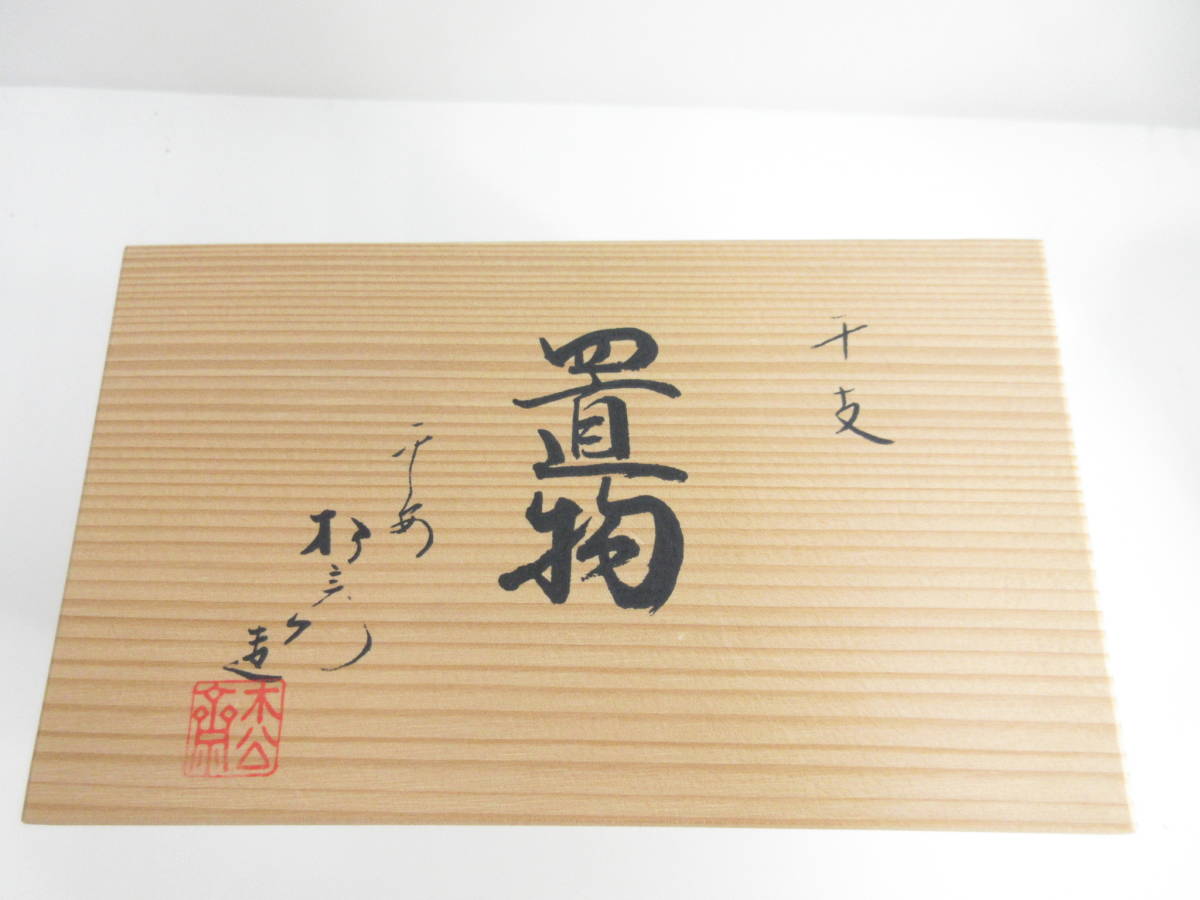 干支
置物
平安
松斎
造
松斎